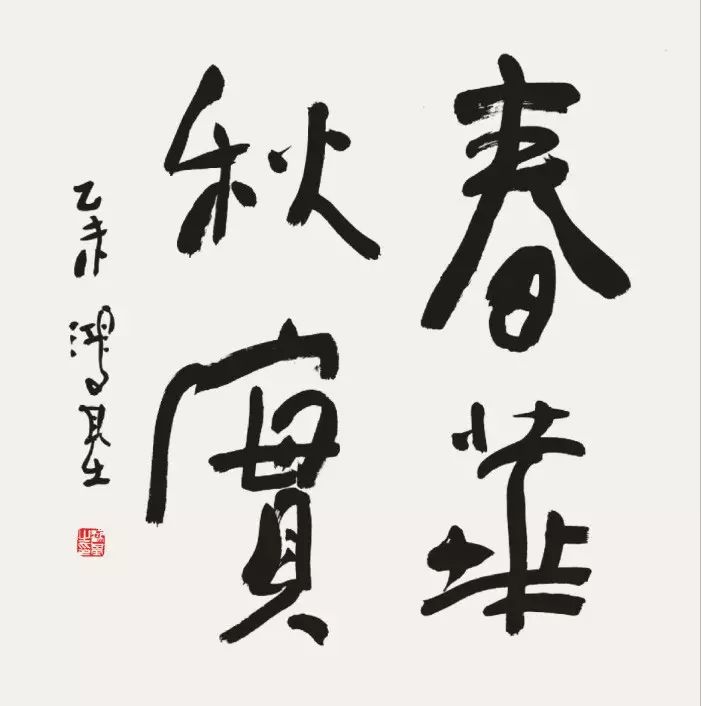 春華
秋實
乙未 鴻基